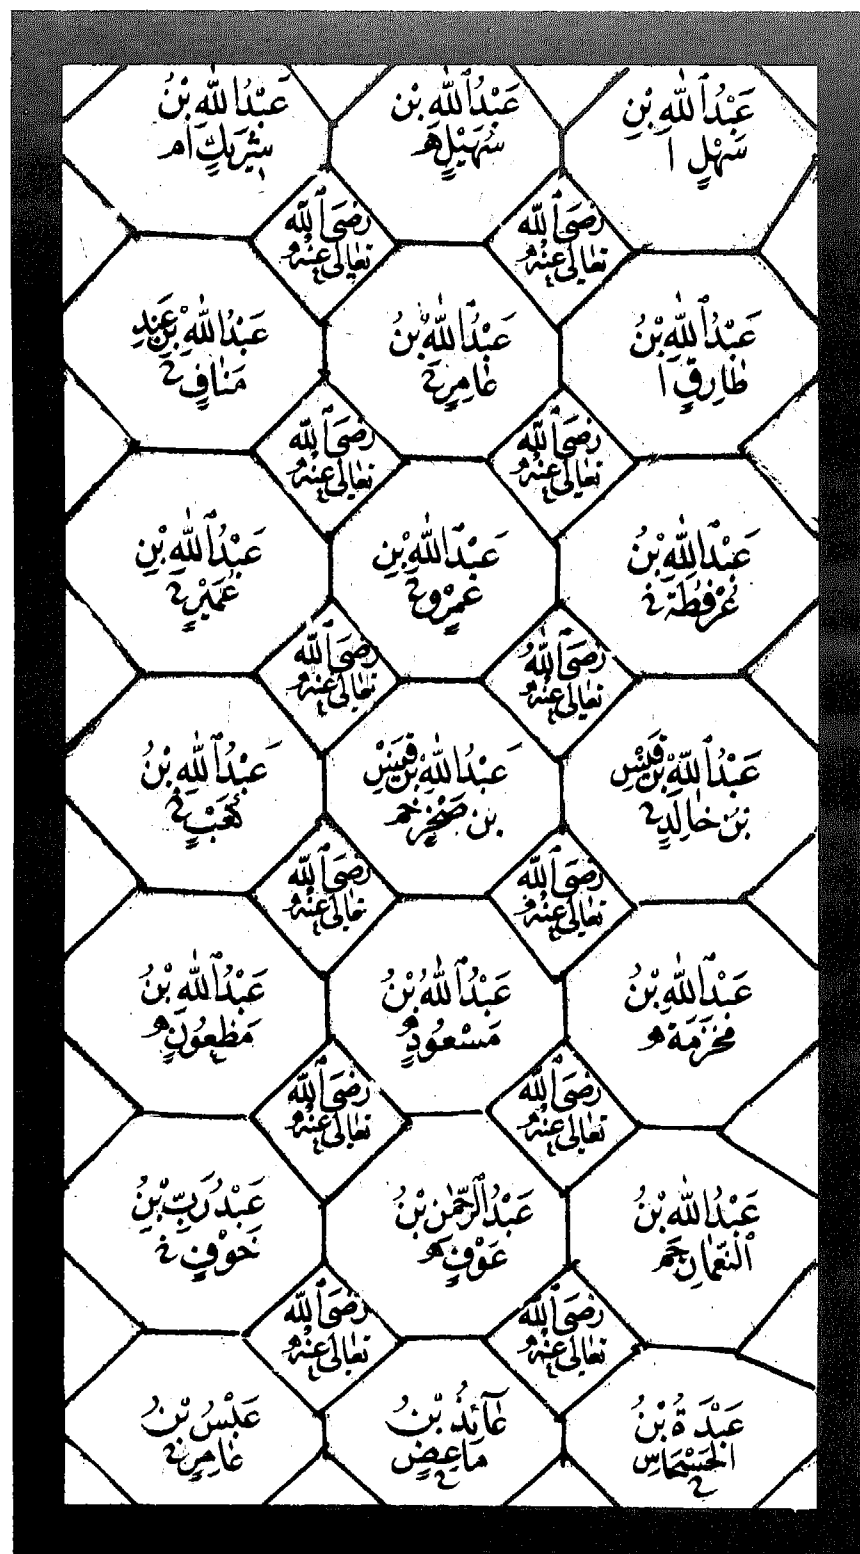 عَبْدُ ٱللّٰهِ بْنِ
سَهْلٍ ا
عَبْدُ ٱللّٰهِ بْن
سُهَيْلٍ ه
عَبْدُ ٱللّٰهِ بْنُ
شَرِيكٍ ام
رَضِىَ ٱللّٰه
تعَالٰى عَنْهُ
رَضِىَ ٱللّٰه
تعَالٰى عَنْهُ
عَبْدُ ٱللّٰهِ بْنُ
طَارِقٍ ا
عَبْدُ ٱللّٰهِ بْنُ
عَامِرٍ خ
عَبْدُ ٱللّٰهِ بْنِ عَبْدِ
مَنَافٍ خ
رَضِىَ ٱللّٰه
تعَالٰى عَنْهُ
رَضِىَ ٱللّٰه
تعَالٰى عَنْهُ
عَبْدُ ٱللّٰهِ بْنُ
عُرْفُطَة خ
عَبْدُ ٱللّٰهِ بْنِ
عَمْرٍو خ
عَبْدُ ٱللّٰهِ بْنِ
عُمَيْرٍ خ
رَضِىَ ٱللّٰهُ
تعَالٰى عَنْهُ
رَضِىَ ٱللّٰه
تعَالٰى عَنْهُ
عَبْدُ ٱللّٰهِ بْن قَيْسِ
بْن خَالِدٍ خ
عَبْدُ ٱللّٰهِ بْن قَيْسِ
بن صَخْرٍ
عَبْدُ ٱللّٰهِ بْنُ
كَعْبٍ خ
رَضِىَ ٱللّٰه
تعَالٰى عَنْهُ
رَضِىَ ٱللّٰه
تعَالٰى عَنْهُ
عَبْدُ ٱللّٰهِ بْنُ
مَخْرَمَة ه
عَبْدُ ٱللّٰهِ بْنُ
مَسْعُودٍ ه
عَبْدُ ٱللّٰهِ بْنُ
مَظْعُونٍ ه
رَضِىَ ٱللّٰه
تعَالٰى عَنْهُ
رَضِىَ ٱللّٰه
تعَالٰى عَنْهُ
عَبْدُ ٱللّٰهِ بْنُ
ٱلنُّعْمَانِ
عَبْدُ ٱلرَّحْمٰنِ بْنُ
عَوْفٍ ه
عَبْدُ رَبِّ بْنِ
حَوْفٍ خ
رَضِىَ ٱللّٰه
تعَالٰى عَنْهُ
رَضِىَ ٱللّٰه
تعَالٰى عَنْهُ
عَبْدَةُ بْنُ
الحَسْحَاسِ خ
عَآئِذُ بْنُ
مَاعِضٍ خ
عَبْسُ بْنُ
عَامِرٍ خ